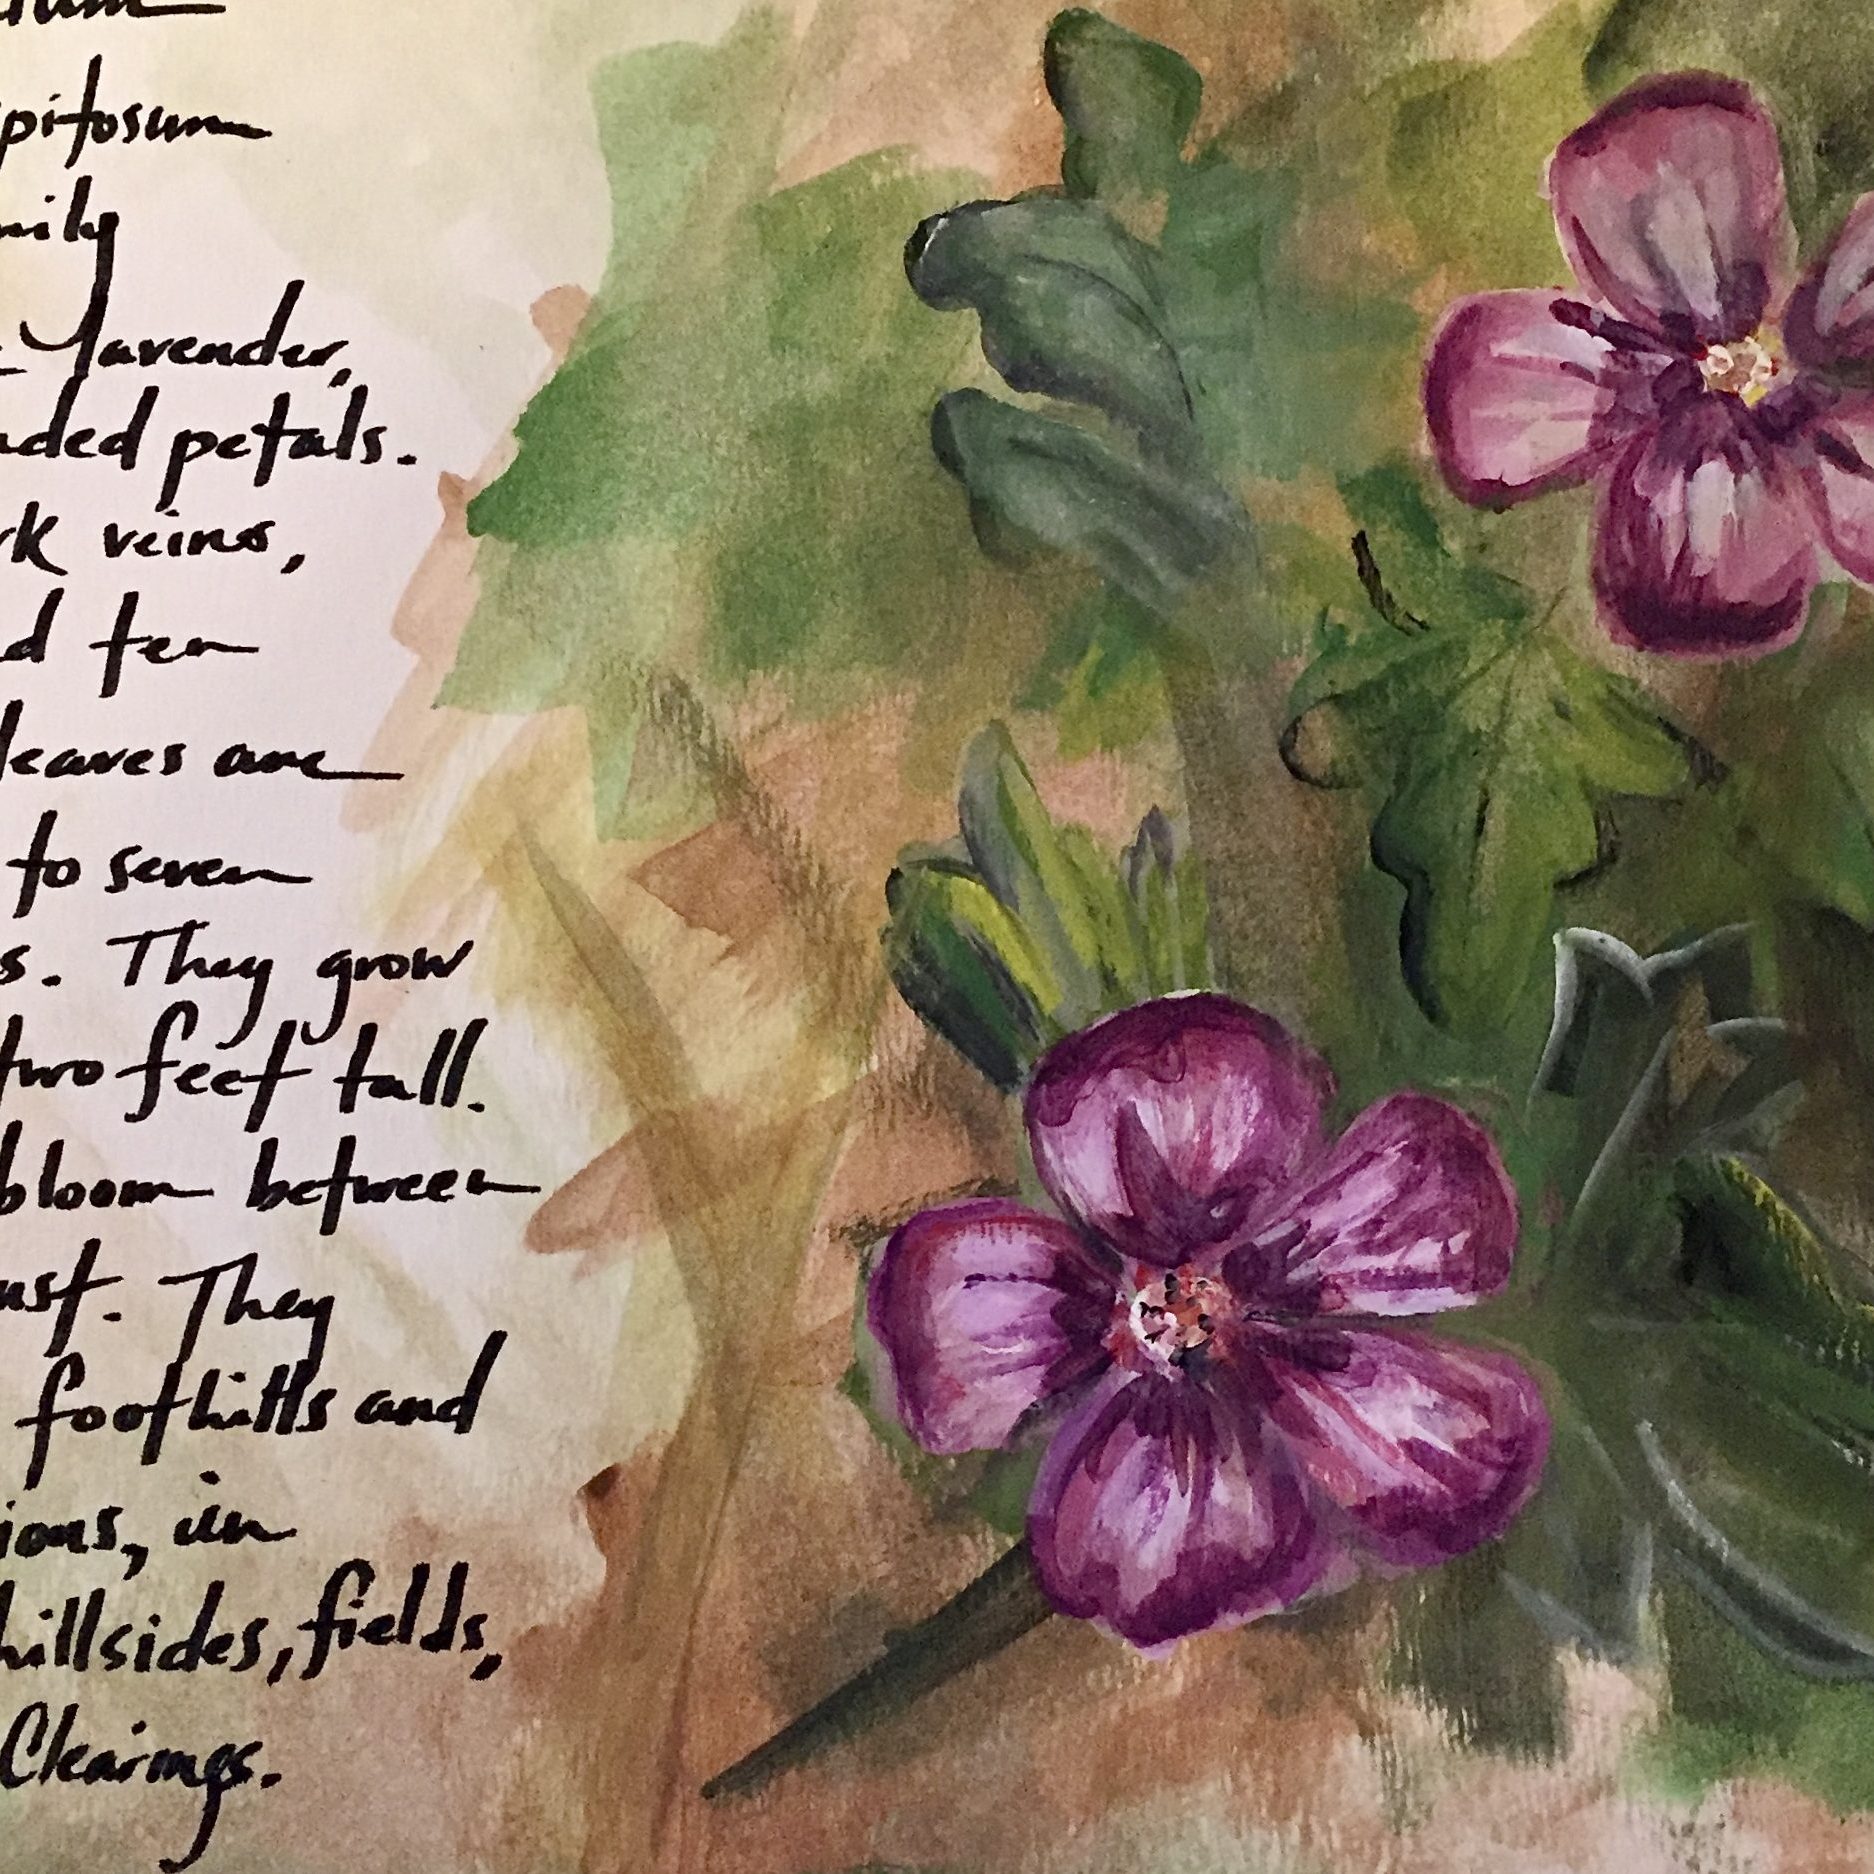 pitosum
mily
lavender,
ded petals.
rk veins,
d ten
leaves are
to seven
s. They grow
two feet tall.
bloom between
ust. They
foothills and
ions, in
hillsides, fields,
Clearings.